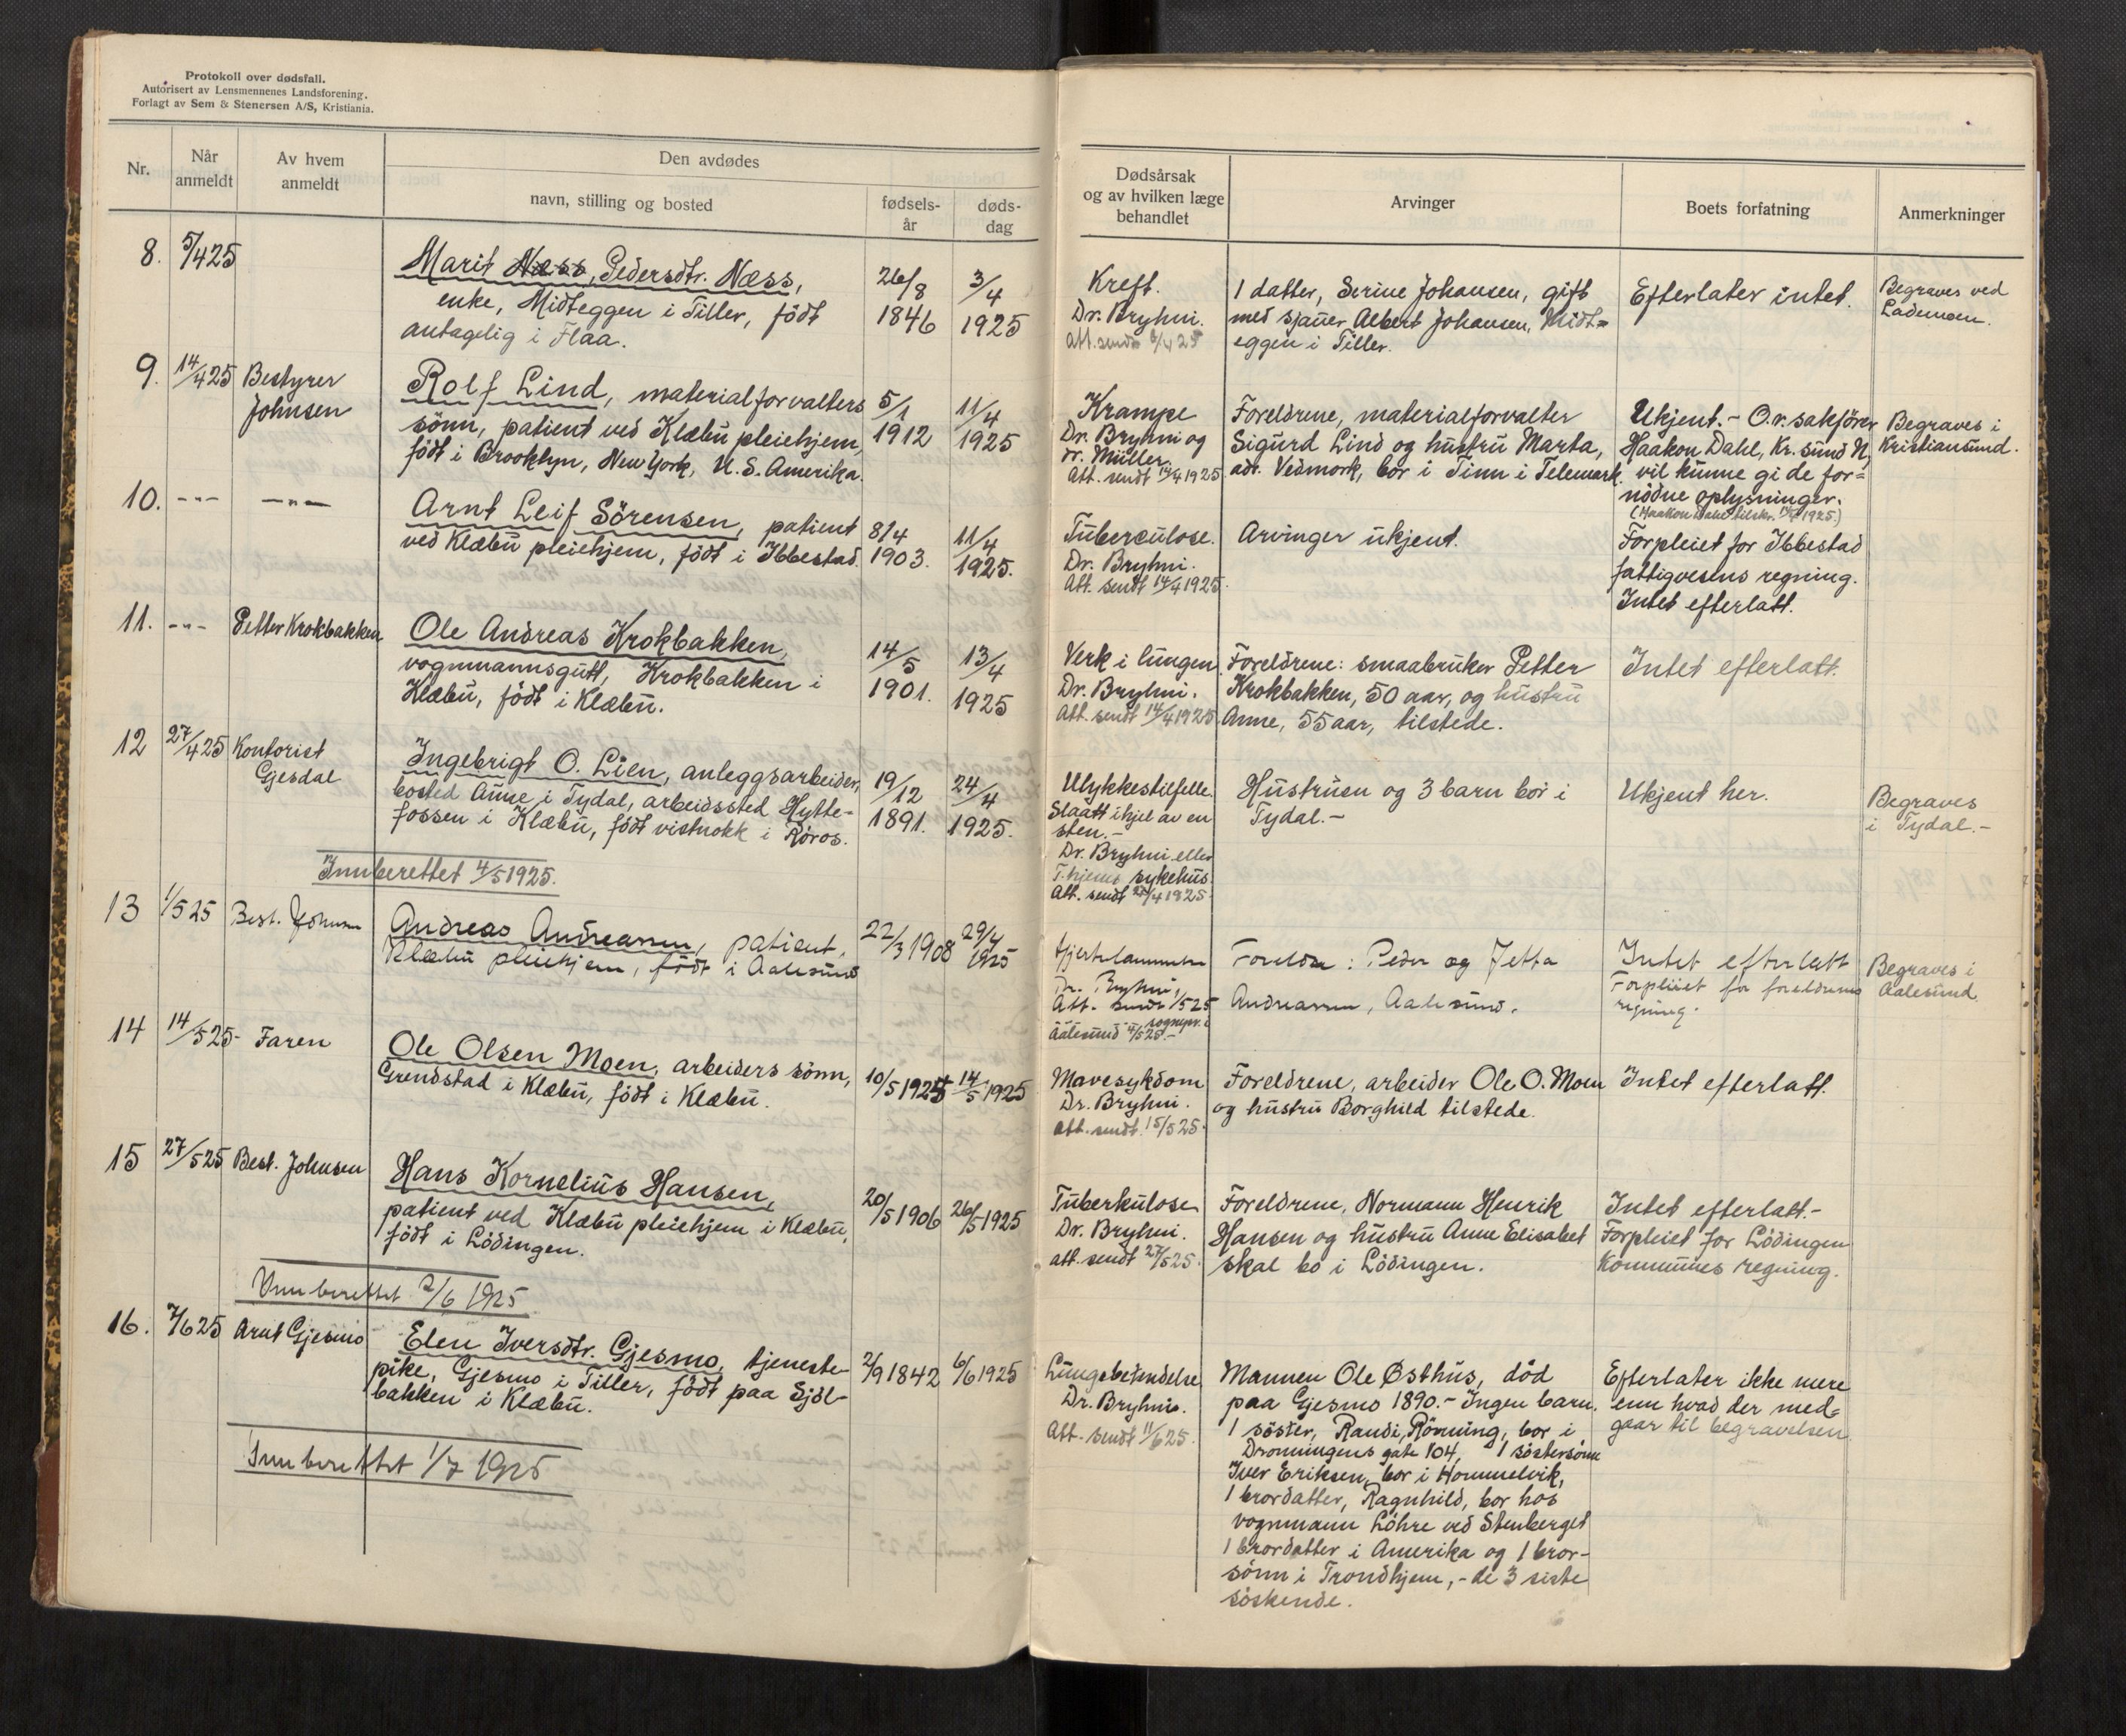 Protokoll over dødsfall.
Autorisert av Lensmennenes Landsforening.
Forlagt av Sem & Stenersen A/S, Kristiania.
Nr.
Når
anmeldt
Av hvem
anmeldt
Den avdødes
navn, stilling og bosted
fødsels-
år
døds-
dag
Dødsårsak
og av hvilken læge
behandlet
Arvinger
Boets forfatning
Anmerkninger
8. 5/4 25
Marit Næss, Pedersdtr. Næss,
enke, Midteggen i Tiller, födt
antagelig i Flaa.
26/8
1846
3/4
1925
Kreft.
Dr. Bryhni.
Att. sendt 6/4 25
1 datter, Serine Johansen, gift
med sjauer Albert Johansen, Midt=
eggen i Tiller.
Efterlater intet.
Begraves ved
Lademoen.
9. 14/4 25 Bestyrer
Johnsen
Rolf Lind, materialforvalters
sönn, patient ved Klæbu pleiehjem,
födt i Brooklyn, New York, U.S. Amerika.
5/1
1912
11/4
1925
Krampe
Dr. Bryhni og
dr. Müller.
Att. sendt 14/4 1925
Foreldrene, materialforvalter
Sigurd Lind og hustru Marta,
adr. Vedmork, bor i Tinn i Telemark.
Ukjent. - O.r. sakförer
Haakon Dahl, Kr.sund N,
vil kunne gi de for=
nödne oplysninger.
(Haakon Dahl tilskr. 1925.)
Begraves i
Kristiansund.
10. -"- -"-
Arnt Leif Sörensen, patient
ved Klæbu pleiehjem, födt i Ibbestad.
8/4
1903.
11/4
1925.
Tuberculose.
Dr. Bryhni.
Att. sendt 14/4 1925.
Arvinger ukjent.
Forpleiet for Ibbestad
fattigvesens regning.
Intet efterlatt.
11. -"- Petter Krokbakken
Ole Andreas Krokbakken,
vognmannsgutt, Krokbakken i
Klæbu, födt i Klæbu.
14/5
1901.
13/4
1925
Verk i lungen
Dr. Bryhni.
Att. sendt 14/4 1925.
Foreldrene: smaabruker Petter
Krokbakken, 50 aar, og hustru
Anne, 55 aar, tilstede.
Intet efterlatt.
12 27/4 25 Kontorist
Gjesdal
Ingebrigt O. Lien, anleggsarbeider,
bosted Aune i Tydal, arbeidssted Hytte-
fossen i Klæbu, födt vistnokk i Röros.
19/12
1891.
24/4
1925.
Ulykkestilfelle.
Slaatt ihjel av en
sten. -
Dr. Bryhni eller
T.hjems sykehus
Att. sendt 27/4 1925.
Hustruen og 3 barn bor i
Tydal. -
Ukjent her.
Begraves
i Tydal. -
Innberettet 4/5 1925.
13 1/5 25 Best. Johnsen
Andreas Andreassen, patient,
Klæbu pleiehjem, födt i Aalesund
22/3 1908
29/4
1925
Hjertelammelse
Dr. Bryhni,
Att. sendt 1/5 25
sognepr. i
Aalesund 4/5 25. -
Foreldre: Peder og Jetta
Andreassen, Aalesund.
Intet efterlatt
Forpleiet for foreldrenes
regning.
Begraves i
Aalesund.
14 14/5 25 - Faren
Ole Olsen Moen, arbeiders sönn,
Grendstad i Klæbu, födt i Klæbu.
10/5 1925
14/5 1925
Mavesykdom
Dr. Bryhni.
Att. sendt. 15/5 25.
Foreldrene, arbeider Ole O. Moen
og hustru Borghild tilstede.
Intet efterlatt.
15 27/5 25 Best. Johnsen
Hans Kornelius Hansen,
patient ved Klæbu pleiehjem i Klæbu,
födt i Lödingen.
20/5 1906
26/5 1925
Tuberkulose
Dr. Bryhni.
att. sendt 27/5 25.
Foreldrene, Normann Henrik
Hansen og hustru Anne Elisabet
skal bo i Lödingen.
Intet efterlatt. -
Forpleiet for Lödingen
Kommunes regning.
Innberettet 2/6 1925
16. 7/6 25 Arnt Gjesmo
Elen Iversdtr. Gjesmo, tjeneste-
pike, Gjesmo i Tiller, födt paa Sjöl-
bakken i Klæbu.
2/9 1842
6/6 1925
Lungebetendelse
Dr. Bryhni.
Att. sendt 11/6 25.
Mannen Ole Østhus, död
paa Gjesmo 1890. - Ingen barn.
1 söster, Randi, Rönning, bor i
Dronningens gate 104, 1 söstersönn
Iver Eriksen, bor i Hommelvik,
1 brordatter, Ragnhild, bor hos
vognmann Löhre ved Stenberget
1 brordatter i Amerika og 1 bror-
sönn i Trondhjem, - de 3 siste
söskende.
Efterlater ikke mere
enn hvad der med=
gaar til begravelsen
Innberettet 1/7 1925